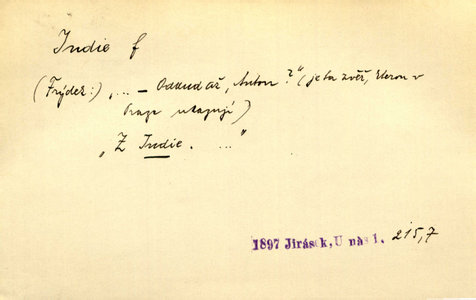 Indie f
(Frýdek:) „... – Odkud až, Anton?" (je ta zvěř, kterou v
ukazují)
„Z Indie. ..."
1897 Jirásek, U nás 1. 215,7